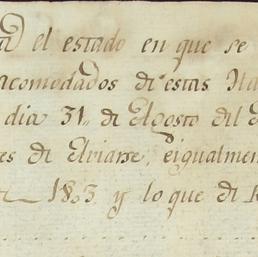 el estado en que se
acomodados de estas
dia 31,, de Agosto del
es de eigualmen
1803 y lo que de